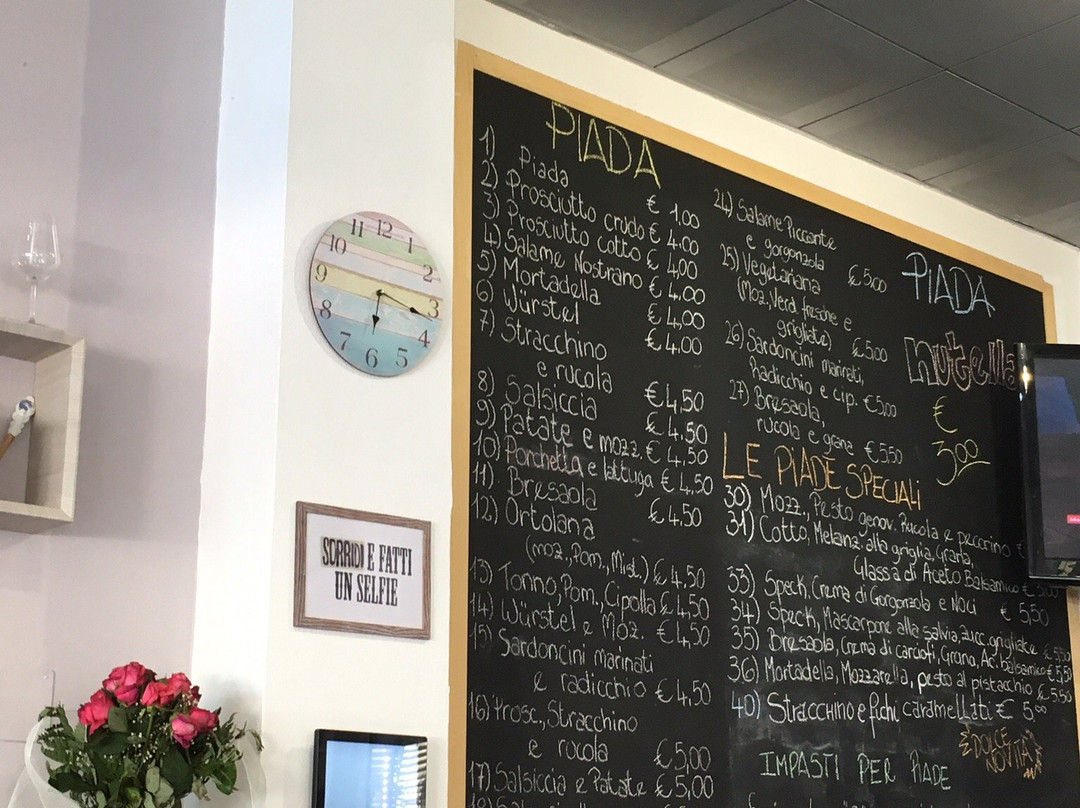 PIADA
1) Piada € 1,00
2) Prosciutto crudo € 4,00
3) Prosciutto cotto € 4,00
4) Salame Nostrano € 4,00
5) Mortadella € 4,00
6) Würstel € 4,00
7) Stracchino
e rucola € 4,50
8) Salsiccia € 4,50
9) Patate e mozz. € 4,50
10) Porchetta e lattuga € 4,50
11) Bresaola € 4,50
12) Ortolana
(moz, Pom, Mist.) € 4,50
13) Tonno, Pom., Cipolla € 4,50
14) Würstel e Moz. € 4,50
15) Sardoncini marinati
e radicchio € 4,50
16) Prosc., Stracchino
e rucola € 5,00
17) Salsiccia e Patate € 5,00
24) Salame Piccante
e gorgonzola € 5,00
25) Vegetariana
(Moz, Verd. fresche e
grigliate) € 5,00
26) Sardoncini marinati,
Radicchio e cip. € 5,00
27) Bresaola,
rucola e grana € 5,50
PIADA
nutella
€
3,00
LE PIADE SPECIALI
30) Mozz., Pesto genov. Rucola e pecorino €
31) Cotto, Melanz. alla griglia, Grana,
Glassa di Aceto Balsamico €
33) Speck, Crema di Gorgonzola e Noci € 5,50
34) Speck, Mascarpone alla salvia, zucc. grigliate € 5,50
35) Bresaola, Crema di carciofi, Grana, Ac. balsamico € 5,50
36) Mortadella, Mozzarella, pesto al pistacchio € 5,50
40) Stracchino e fichi caramellati € 5,00
DOLCE
NOVITA'
IMPASTI PER PIADE
11 12 1
10 2
9 3
8 4
7 6 5
SORRIDI E FATTI
UN SELFIE